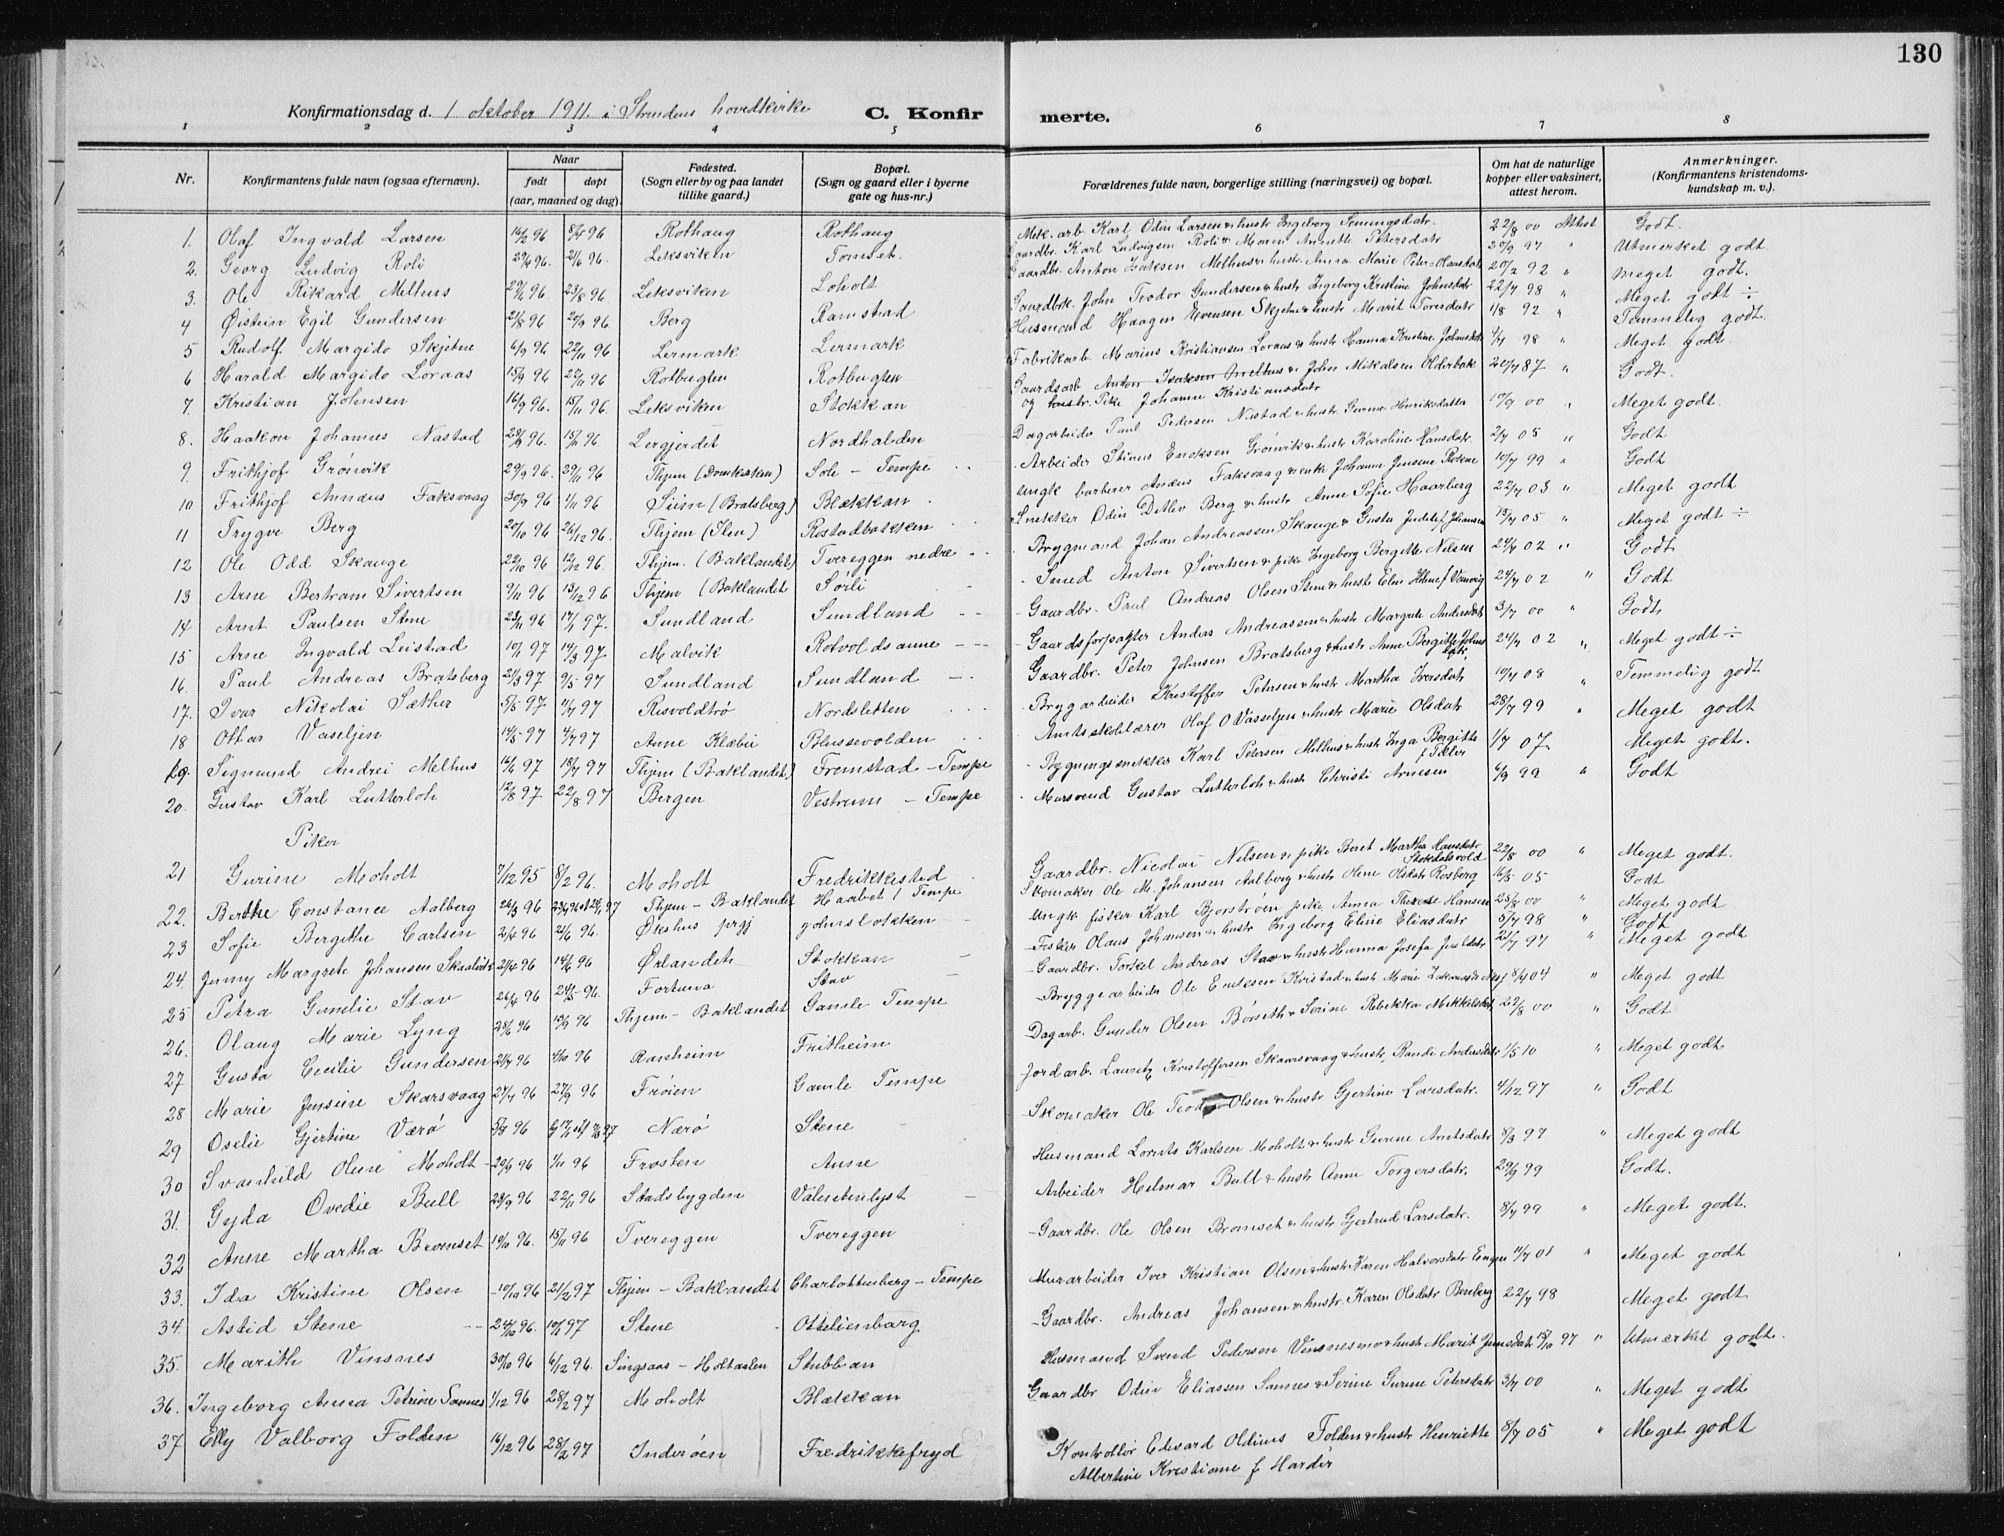 130
Konfirmationsdag d. 1 oktober 1911. i Strindens hovedkirke C. Konfir merte.
1 2 3 4 5 6 7 8
Nr. Konfirmantens fulde navn (ogsaa efternavn). Naar født døpt (aar, maaned og dag). Fødested. (Sogn eller by og paa landet tillike gaard.) Bopæl. (Sogn og gaard eller i byerne gate og hus-nr.) Forældrenes fulde navn, borgerlige stilling (næringsvei) og bopæl. Om hat de naturlige kopper eller vaksinert, attest herom. Anmerkninger. (Konfirmantens kristendoms-kundskap m. v.).
1. Olaf Ingvald Larsen 96 96 Rothaug Rothaug Mek. arb Karl Odin Larsen & hustr Ingeborg 22/8 00 Attest Godt.
2. Georg Ludvig Roli 96. 96. Leksviken Tomset. Gaardbr. Karl Ludvigsen Roli & Maren Annette Petersdatr 20/9 97 " Utmerket godt
3. Ole Rikard Melhus 96. 23/8 96 Leksviken Loholt Gaardbr. Anton Isaksen Melhus & hustr. Anna Marie Peter-Hansdatr 20/2 92 " Meget godt.
4 Øistein Egil Gundersen 2/8 96 20/9 96. Berg Ramstad Gaardbk. John Teodor Gundersen & hustr Ingeborg Kristine Johnsdatr 22/7 98 " Meget godt ÷
5 Rudolf Margido Skjetne 6/9 96 22/11 96 Lermark Lermark Husmand Haagen Evensen Skjetne & hustr Marit Toresdatr 1/8 92 " Temmelig godt.
6 Harald Margido Loraas 15/9 96 22/11 96 Rotbugten Rotbugten Fabrikarb Marius Kristiansen Loraas & hustr Hanna Kristine Johnsdatr 98 " Meget godt.
7. Kristian Johnsen 16/9 96. 15/11 96 Leksviken Stokkan Gaardsarb Anton Isaksen Melhus & John Mikalsen Olderbak og hustr. Pike Johanne Kristiansdatr 20/7 87 " Godt.
8. Haakon Johannes Nastad 96. 96. Lergjerdet Nordhalden Dagarbeider Paul Pedersen Nastad & hustr. Gurine Henriksdatter 00 " Meget godt.
9. Frithjof Grønvik 29/9 96. 29/11 96 Thjem (Domkirken) Sole - Tempe Arbeider Stinus Enoksen Grønvik & hustr Karoline Hansdatr. 2/7 05 " Godt
10 Frithjof Annæus Faksvaag 30/9 96 1/11 96 Siim (Bratsberg) Blækkan . Ungk barberer Anæus Faksvaag & enke Johanne Jensine 10/7 99 " Godt
11 Trygve Berg 20/10 96 26/12 96. Thjem (Ilen) Rostadbakken Snekker Odin Ditlev Berg & hustr Anne Sofie Haarberg 22/7 03 " Meget godt
12 Ole Odd Skauge 22/10 96 12/12 96. Thjem. (Baklandet) Tvereggen nedre Brygmand Johan Andreassen Skauge & Gusta Johansen 13/7 05 " Meget godt ÷
13 Arne Bertram Sivertsen 9/11 96 13/12 96 Thjem (Baklandet Sørli Smed Anton Sivertsen & pike Ingeborg Bergitte Nilsen 24/7 02 " Godt
14 Arnt Paulsen Stene 23/11 96 97. Sundland Sundland Gaardbr. Paul Andreas Olsen Stene & hustr Elen Helene f. Vanvig 24/7 02 " Godt
15 Arne Ingvald Leistad 10/1 97 14/3 97 Malvik Rotvoldsanne Gaardsforpagter Anders Andreassen & hustr Margrete Andersdatr 3/7 00 " Godt
16. Paul Andreas Bratsberg 21/3 97 9/5 97 Sundland Sundland Gaardbr. Peter Johnsen Bratsberg & hustr Anne Bergitte Johnsdatr. 24/7 02 " Meget godt ÷
17. Ivar Nikolai Sæther 5/5 97 97 Risvoldtrø Nordsletten Brygarbeider Kristoffer Petersen & hustr Martha Iversdatr 10/7 08 " Temmelig godt
18 Ottar Vaseljen 14/5 97 4/7 97 Anne Klæbu Blussevolden Amtsskolelærer Olaf O Vasseljen & hustr Marie Olsdatr 28/7 99 " Meget godt
19. Sigmund Andrei Melhus 97 18/7 97 Thjem (Baklandet) Fremstad - Tempe Bygningssnekker Karl Petersen Melhus & hustr Inga Bergitte f. 1/7 07. Meget godt.
20. Gustav Karl Lutterloh 12/8 97 22/8 97 Bergen Vestrum - Tempe Mursvend Gustav Lutterloh & hustr Christi Arnesen 6/9 99 " Godt
Piker
21 Gurine Moholt 7/12 95 8/2 96. Moholt Fredrikkested Gaardbr. Nicolai Nilsen & pike Beret Martha Hansdatr 22/8 00 " Meget godt.
22. Berthe Constance Aalberg 26/3 96 Thjem - Baklandet Haabet / Tempe Skomaker Ole M. Johansen Aalberg & hustr Oline Olsdatr Rosberg 05 Godt
23 Sofie Bergithe Carlsen 96 96. Økshus prgj Ungk fisker Karl Bjørstrøen pike Anna Therese Hansen 00 " Meget godt
24. Jenny Margrete Johansen 96 96 Ørlandet Stokkan Fisker Olaus Johansen & hustr Ingeborg Eline Eliasdatr 5/7 98 " Godt
25 Petra Gunelie Stav 26/4 96 24/5 96. Fortuna Stav Gaardbr. Torkel Andreas Stav & hustr Hanna Josefa 97 " Meget godt
26. Olaug Marie Lyng 96 96 Thjem - Baklandet Gamle Tempe Bryggearbeider Ole 04 " Meget godt
27 Gusta Cecilie Gundersen 96 4/10 96 Ranheim Fritheim Dagarb. Gunder Olsen Børseth & Serine Rebekka Mikkelsdatr 22/8 00 " Godt
28 Marie Jensine Skarsvaag 27/7 96 27/9 96 Frøien Gamle Tempe Jordarb. Lauritz Kristoffersen Skaarsvaag & hustr. Randi Andersdatr 1/5 10 " Meget godt
29 Oselie Gjertine Værø 96 Nærø Stene Skomaker Ole Teodor Olsen & hustr Gjertine Larsdatr. 4/12 97 " Godt
30 Svanhild Oline Moholt 29/9 96 1/11 96 Frosten Anne Husmand Lornts Karlsen Moholt & hustr Gurine Arntsdatr 8/3 97 " Meget godt
31. Gyda Ovedie Bull 28/9 96 22/11 96 Stadsbygden Valentinlyst Arbeider Helmar Bull & hustr Anne Torgersdatr. 29/9 99 Godt.
32 Anne Martha Bromset 19/10 96. 15/11 96 Tvereggen Tvereggen Gaardbr. Ole Olsen Bromset & hustr Gjertrud Larsdatr. 8/7 99 " Meget godt.
33. Ida Kristine Olsen 10/10 96 21/2 97 Thjem - Baklandet Charlottenberg - Tempe Murarbeider Iver Kristian Olsen & hustr Karen Halvorsdatr Engen 01 " Meget godt
34. Astid Stene 24/10 96. 10/1 97 Stene Ottelienborg Gaardbr. Andreas Johansen & hustr. Karen Olsdatr Benberg 22/7 98 Meget godt
35. Marith Vinsnes 30/10 96 6/12 96. Singsaas - Holtaalen Stubban Husmand Svend Pedersen Vinsnesmo & hustr Marit Jensdatr 97 " Utmerket godt.
36. Ingeborg Anna Petrine Sannes 1/12 96 28/2 97 Moholt Blækkan Gaardbr Odin Eliassen Sannes & Serine Gurine Petersdatr 3/7 00 " Meget godt
37 Elly Valborg Folden 16/12 96 28/2 97 Inderøen Fredrikkefryd Kontrollør Edvard Oldinus Folden & hustr Henriette 8/7 05 " Meget godt
Albertine Kristiane f Harder